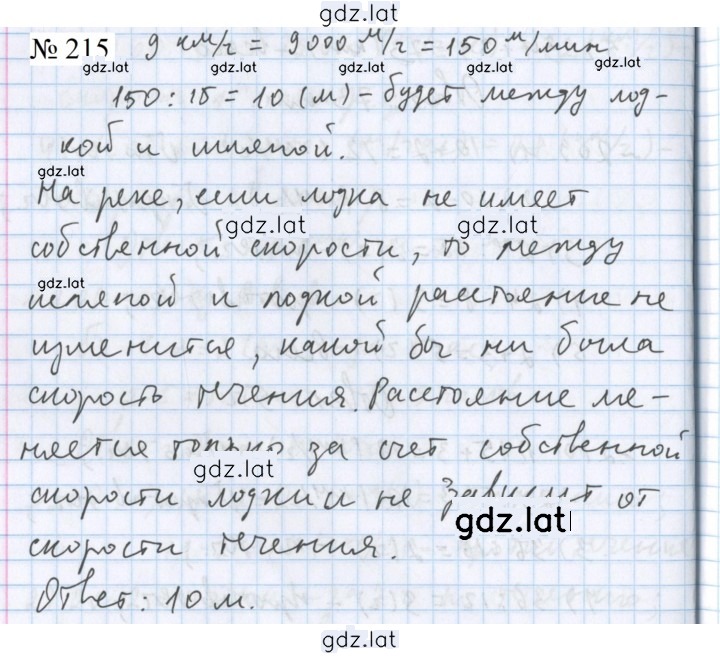 gdz.lat
№ 215 9 км/ч = 9000 м/ч = 150 м/мин
gdz.lat gdz.lat gdz.lat gdz.lat gdz.lat
150 : 15 = 10 (м) – будет между лод-
кой и шляпой.
gdz.lat
На реке, если лодка не имеет
gdz.lat gdz.lat
собственной скорости, то между
gdz.lat
шляпой и лодкой расстояние не
изменится, какой бы ни была
скорость течения. Расстояние ме-
няется только за счет собственной
gdz.lat
скорости лодки и не зависит от
gdz.lat
скорости течения.
Ответ: 10 м.
gdz.lat